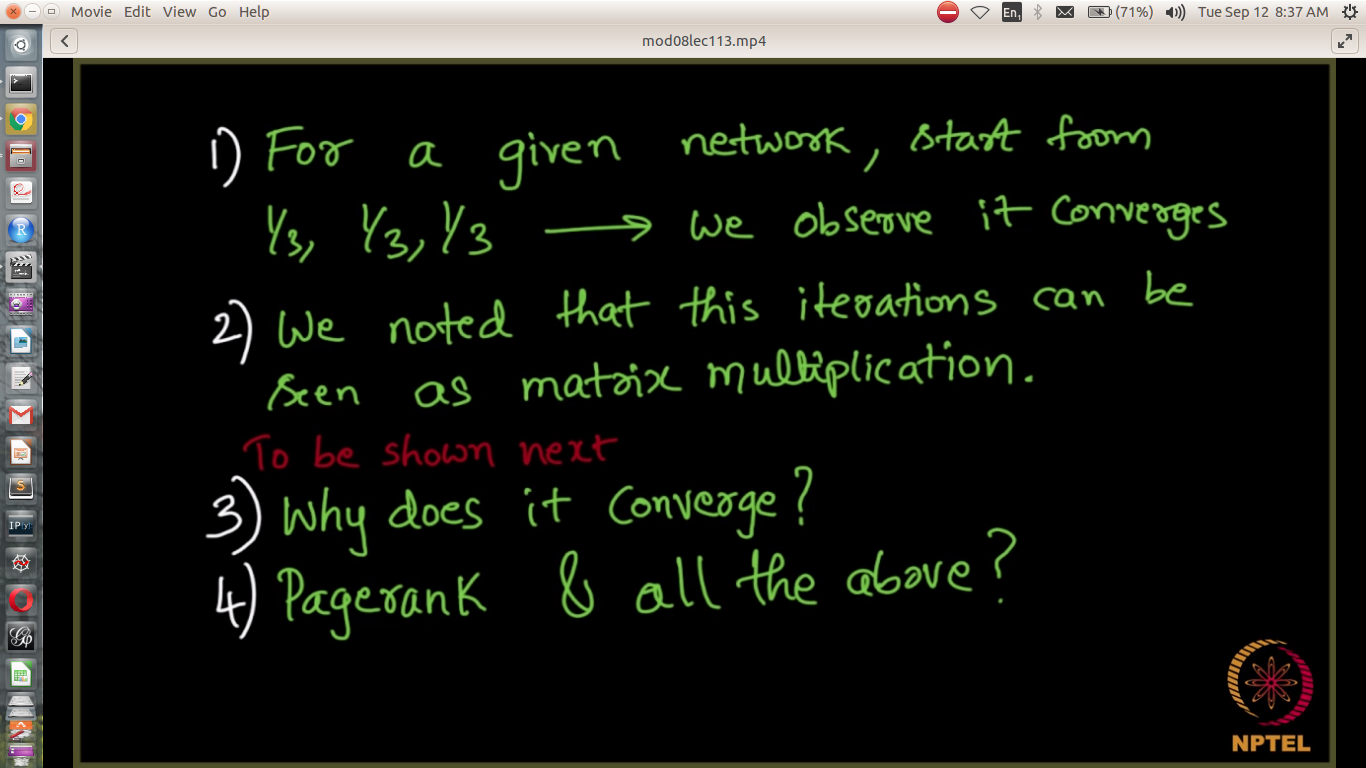 Movie Edit View Go Help
En1 (71%) Tue Sep 12 8:37 AM
mod08lec113.mp4
1) For a given network, start from
1/3, 1/3, 1/3 → we observe it converges
2) We noted that this iterations can be
seen as matrix multiplication.
To be shown next
3) Why does it converge?
4) Pagerank & all the above?
NPTEL